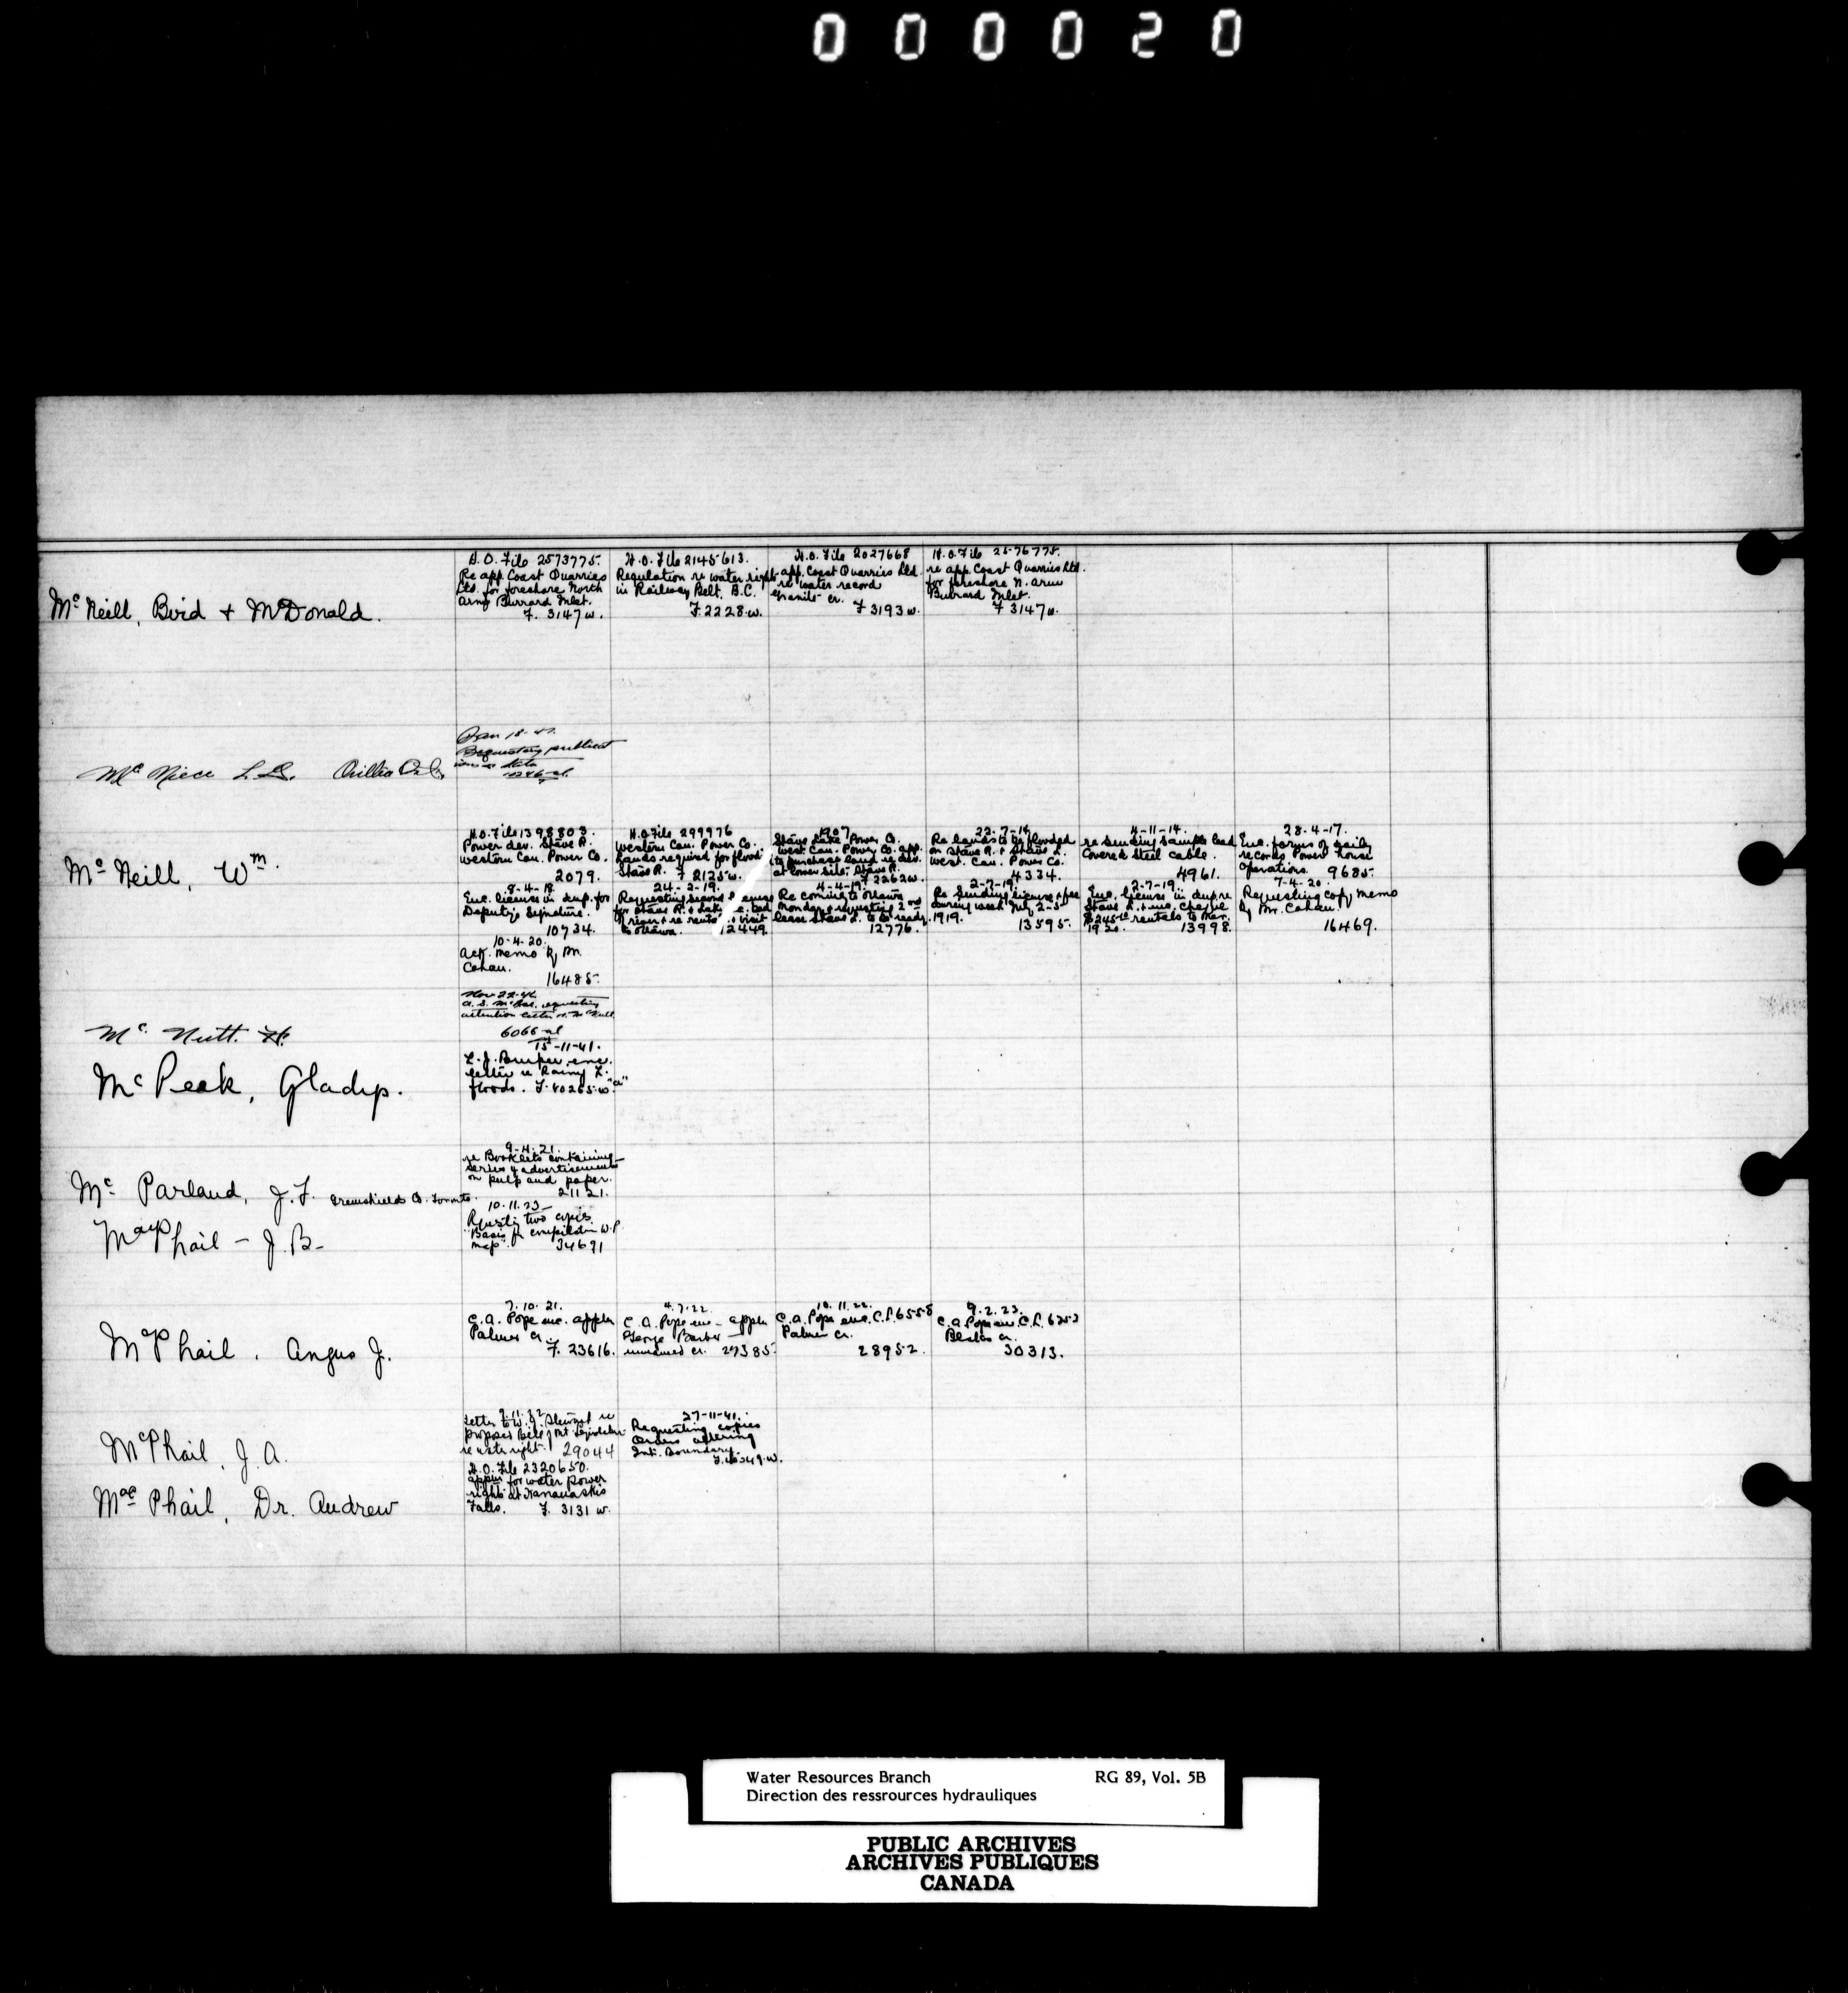 000020
Mc Neill, Bird + McDonald.
H.O. File 2573775.
Re app. Coast Quarries
Ltd. for foreshore North
Arm Burrard Inlet.
F. 3147 w.
H.O. File 2145613.
Regulation re water right
in Railway Belt. B.C.
F 2228 w.
H.O. File 2027668
app. Coast Quarries Ltd.
re water record
Granite Cr.
F 3193 w.
H.O. File 2576775.
re app. Coast Quarries Ltd.
for foreshore N. Arm
Burrard Inlet.
F 3147 w.
Mc Niece L.
Orillia
Jan 18
Requesting publicat
Mc Neill, Wm.
H.O. File 1398803.
Power dev. Stave R.
Western Can. Power Co.
2079.
H.O. File 299976
Western Can. Power Co.
Lands required for flood
Stave R. F 2125 w.
1907
Stave Lake Power Co.
West. Can. Power Co. app.
to purchase land re dev.
at lower site, Stave R.
F 2262 w.
22-7-14
Re lands to be flooded
on Stave R. + Stave L.
West. Can. Power Co.
4334.
4-11-14.
re sending sample lead
covered steel cable.
4961.
28-4-17.
Enc. forms of daily
records Power house
operations. 9685
8-4-18
Enc. license in dup. for
Deputy's signature.
10734.
24-2-19.
Requesting second
for Stave R. + Lake
river + re rents visit
to Ottawa. 12449.
4-4-19
Re coming to Ottawa
Monday + requesting 2nd
lease Stave L. to be ready.
12776.
2-7-19
Re sending license + fee
during week July 2-5
1919.
13595.
2-7-19.
Enc. license in dup. re
Stave L. + enc. cheque
rentals to Mar.
1920. 13998.
7-4-20.
Requesting copy memo
by Mr. Cahan.
16469.
10-4-20.
Ack. memo by Mr.
Cahan.
16485.
Mc Nutt.
Nov 22
requesting
attention letter
6066
Mc Peak, Gladys.
15-11-41.
enc.
letter re Rainy L.
floods. F. 40265 w "a"
Mc Parland, J.F. Greenshields Co. Toronto.
9-4-21.
re Booklets containing
series of advertisements
on pulp and paper.
21121.
MacPhail - J. B.
10.11.23
Request'g two copies
"Basis for compilation W.P.
map". 34691
McPhail, Angus J.
7.10.21.
C.A. Pope enc. appln
Palmer Cr.
F. 23616.
4.7.22.
C.A. Pope enc - appln
George Barber
unnamed cr. 27385.
10.11.22.
C.A. Pope enc. C.L. 6558
Palmer Cr.
28952.
9.2.23.
C.A. Pope enc. C.L. 6252
Cr.
30313.
McPhail, J. A.
9.11.22
Letter to W.J. Stewart re
proposed Bill
re water right. 29044
27-11-41.
Requesting copies
Orders
Int. Boundary.
Mac Phail, Dr. Andrew
H.O. File 2320650.
appln for water power
rights at Kananaskis
Falls. F. 3131 w.
Water Resources Branch RG 89, Vol. 5B
Direction des ressrources hydrauliques
PUBLIC ARCHIVES
ARCHIVES PUBLIQUES
CANADA